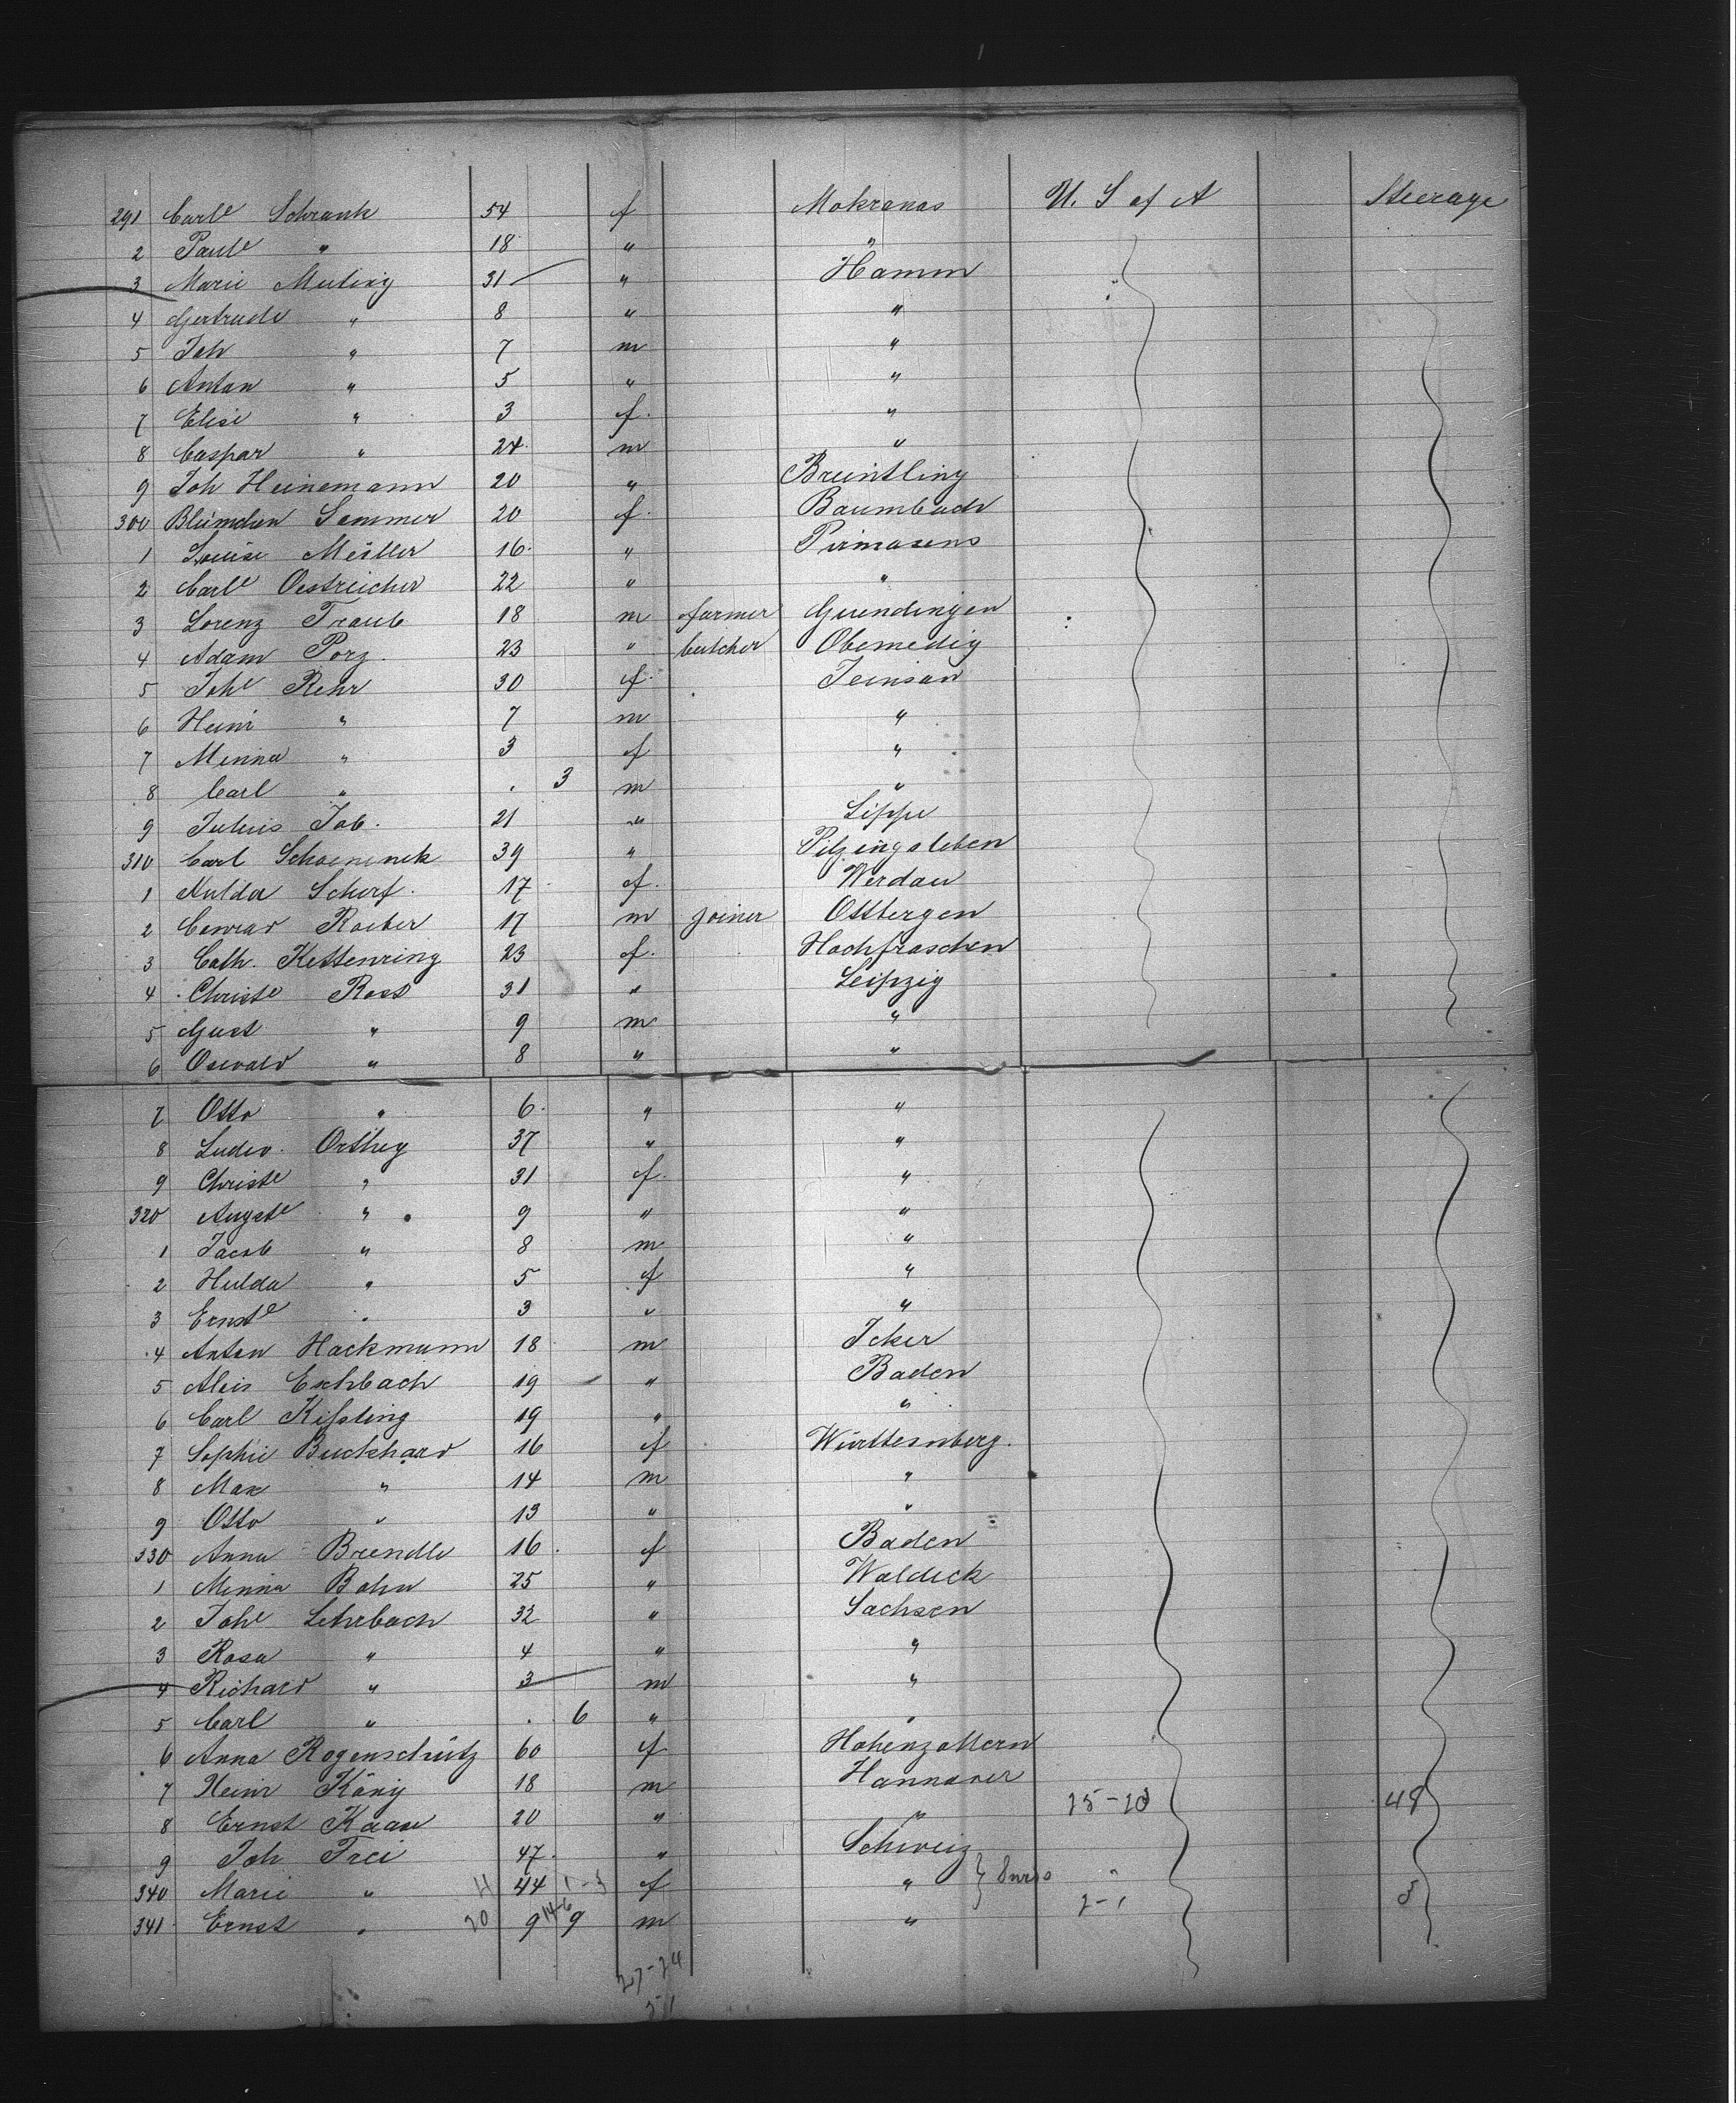 291 Carle Schrank 54 f Mokranas U. S of A Steerage
2 Paule " 18 " "
3 Marie Muting 31 " Hamm
4 Gertrude " 8 " "
5 Joh " 7 m "
6 Anton " 5 " "
7 Elise " 3 f. "
8 Caspar " 24 m "
9 Joh Heinemann 20 " Bruntling
300 Blümchen Sommer 20 f. Baumbach
1 Louise Meiller 16 " Pirmasens
2 Carle Oestreicher 22 " "
3 Lorenz Traub 18 m farmer Guendingen
4 Adam Porz 23 " butcher Obemedig
5 Johe Rehr 30 f. Jeinsan
6 Heinr " 7 m "
7 Minna " 3 f "
8 Carl " . 3 m "
9 Julius Job. 21 " Lippe
310 Carl Schoeninck 39 " Pilzingsleben
1 Hulda Scherf. 17 f. Werdau
2 Conrad Roeber 17 m joiner Ottbergen
3 Cath. Kettenring 23 f. Hochfraschen
4 Christe Ross 31 " Leipzig
5 Gust " 9 m "
6 Oswald " 8 " "
7 Otto " 6 " "
8 Ludw. Orthey 37 " "
9 Christe " 31 f. "
320 Augste " 9 " "
1 Jacob " 8 m "
2 Hulda " 5 f "
3 Ernste " 3 " "
4 Anton Hackmann 18 m Icker
5 Alois Eschbach 19 " Baden
6 Carl Kissling 19 " "
7 Sophie Buckhard 16 f Württemberg.
8 Max " 14 m "
9 Otto " 13 " "
330 Anna Brendle 16 f Baden
1 Minna Bohn 25 " Waldeck
2 Johe Lehrbach 32 " Sachsen
3 Rosa " 4 " "
4 Richard " 3 m "
5 Carl " . 6 " "
6 Anna Rogenschütz 60 f Hohenzollern
7 Heinr König 18 m Hannover
8 Ernst Kaase 20 " " 25-23 48
9 Joh Frei 47 " Schweiz
340 Marie " 44 f "
341 Ernst " 9 9 m " 2-1 3
27-24
51